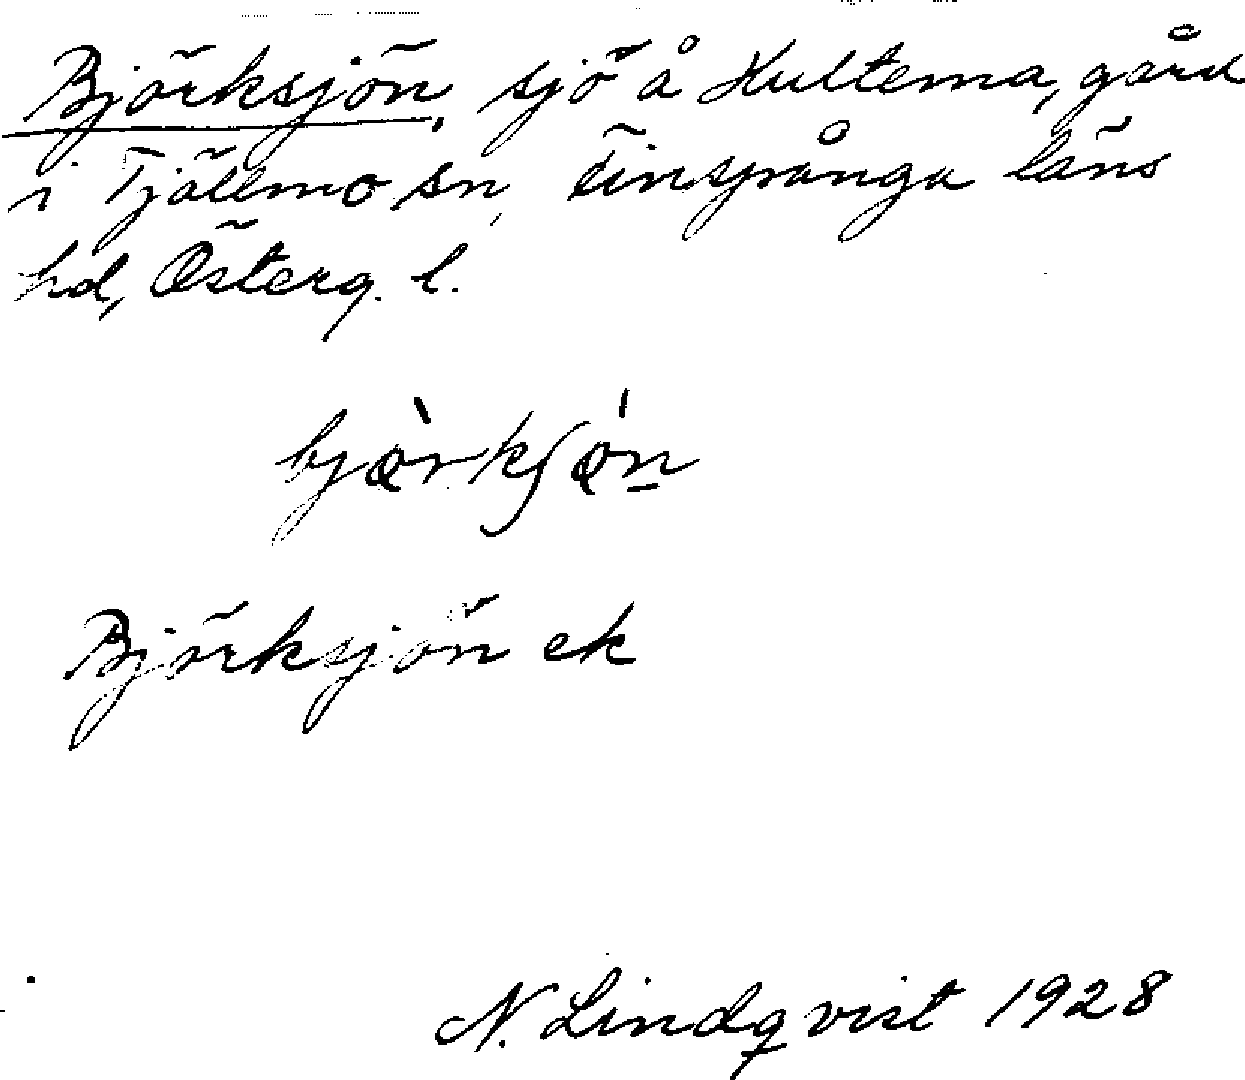 Björksjön, sjö å Hultema, gård
i Tjällmo sn, Finspånga läns
hd, Österg. l.
bjǫ̀rkʃǫ́n̠
Björksjön ek
N. Lindqvist 1928